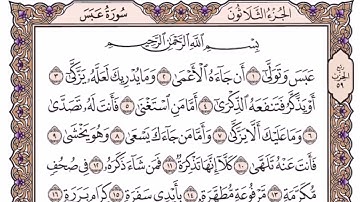 الجُزءُ الثَّلَاثُونَ سُورَةُ عَبَسَ
بِسْمِ اللَّهِ الرَّحْمَٰنِ الرَّحِيمِ
عَبَسَ وَتَوَلَّىٰٓ ۝١ أَن جَآءَهُ ٱلْأَعْمَىٰ ۝٢ وَمَا يُدْرِيكَ لَعَلَّهُۥ يَزَّكَّىٰٓ ۝٣
أَوْ يَذَّكَّرُ فَتَنفَعَهُ ٱلذِّكْرَىٰٓ ۝٤ أَمَّا مَنِ ٱسْتَغْنَىٰ ۝٥ فَأَنتَ لَهُۥ تَصَدَّىٰ
۝٦ وَمَا عَلَيْكَ أَلَّا يَزَّكَّىٰ ۝٧ وَأَمَّا مَن جَآءَكَ يَسْعَىٰ ۝٨ وَهُوَ يَخْشَىٰ ۝٩
فَأَنتَ عَنْهُ تَلَهَّىٰ ۝١٠ كَلَّآ إِنَّهَا تَذْكِرَةٌ ۝١١ فَمَن شَآءَ ذَكَرَهُۥ ۝١٢ فِى صُحُفٍ
مُّكَرَّمَةٍ ۝١٣ مَّرْفُوعَةٍ مُّطَهَّرَةٍۭ ۝١٤ بِأَيْدِى سَفَرَةٍ ۝١٥ كِرَامٍۭ بَرَرَةٍ ۝١٦
ربع
الحزب
٥٩